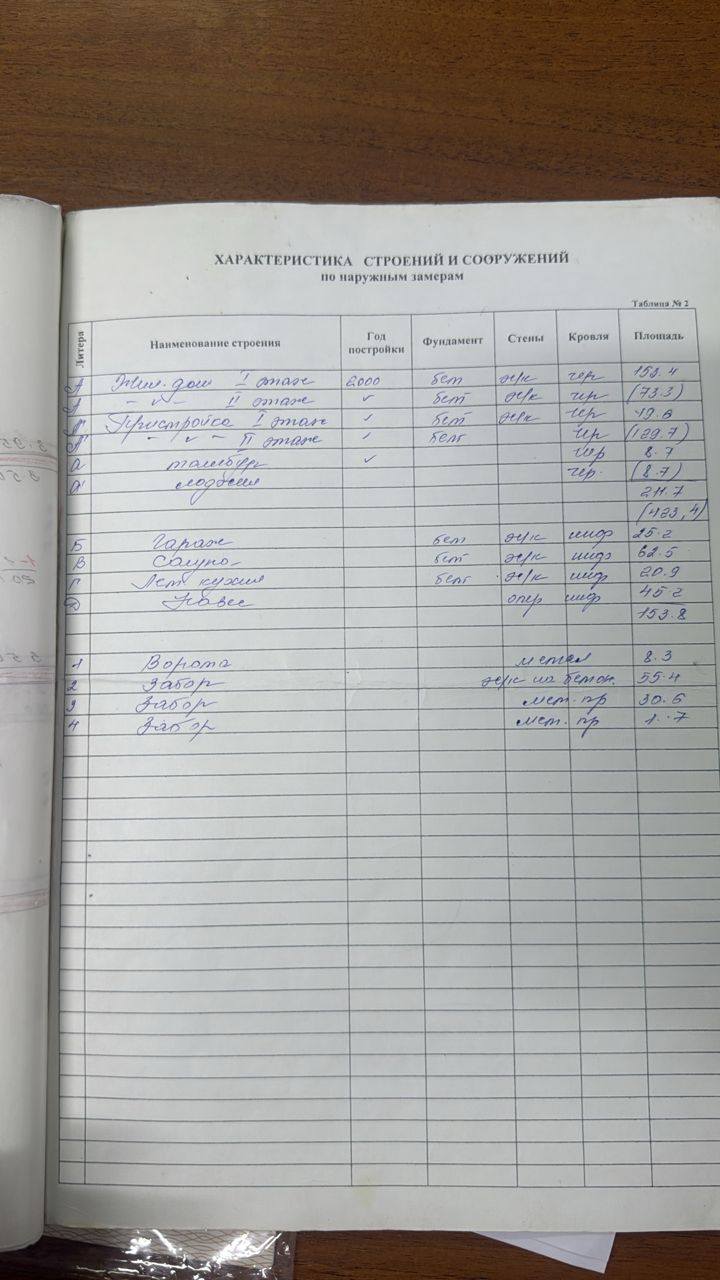 ХАРАКТЕРИСТИКА СТРОЕНИЙ И СООРУЖЕНИЙ
по наружным замерам
Таблица № 2
Литера Наименование строения Год постройки Фундамент Стены Кровля Площадь
А Жил. дом I этаж 2000 бет ж/к чер 153.4
А - " - II этаж ✓ бет ж/к чер (73.3)
А' Пристройка I этаж ✓ бет ж/к чер 49.6
А' - " - II этаж ✓ бет чер (129.7)
а тамбур ✓ чер 8.7
а' лоджия чер. (8.7)
211.7
(423,4)
Б Гараж бет ж/к шиф 25.2
В Сауна бет ж/к шиф 62.5
Г Лет. кухня бет ж/к шиф 20.9
Д Навес опер шиф 45.2
153.8
1 Ворота метал 8.3
2 Забор ж/к из бетон. 55.4
3 Забор мет. пр 30.6
4 Забор мет. пр 1.7